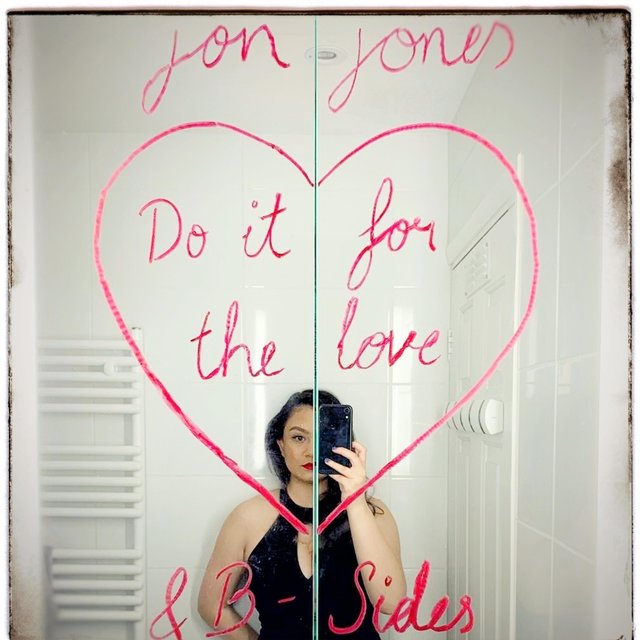 Jon Jones
Do it for
the love
& B-Sides